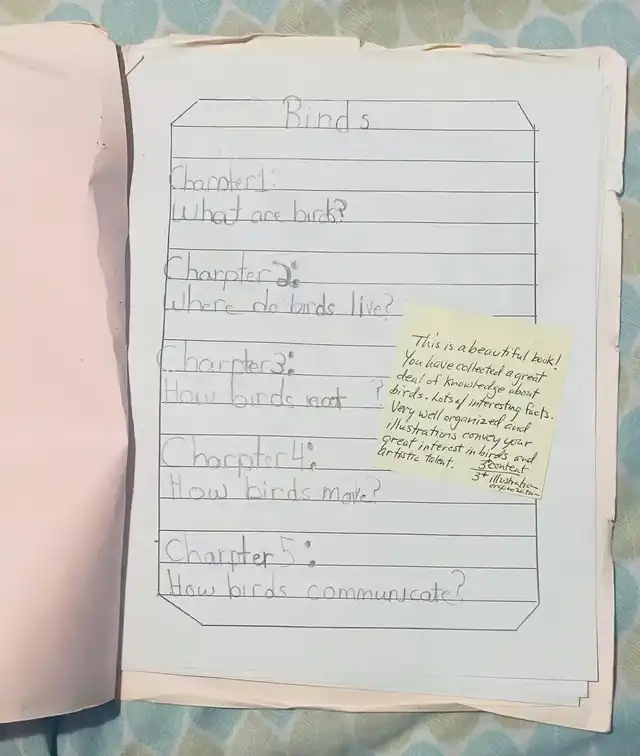 Birds
Charpter1:
What are birds?
Charpter2:
Where do birds live?
Charpter3:
How birds eat ?
Charpter4:
How birds move?
Charpter 5:
How birds communicate?
This is a beautiful book!
You have collected a great
deal of knowledge about
birds. Lots of interesting facts.
Very well organized and
illustrations convey your
great interest in birds and
artistic talent.
3+ content
3+ illustration
organization